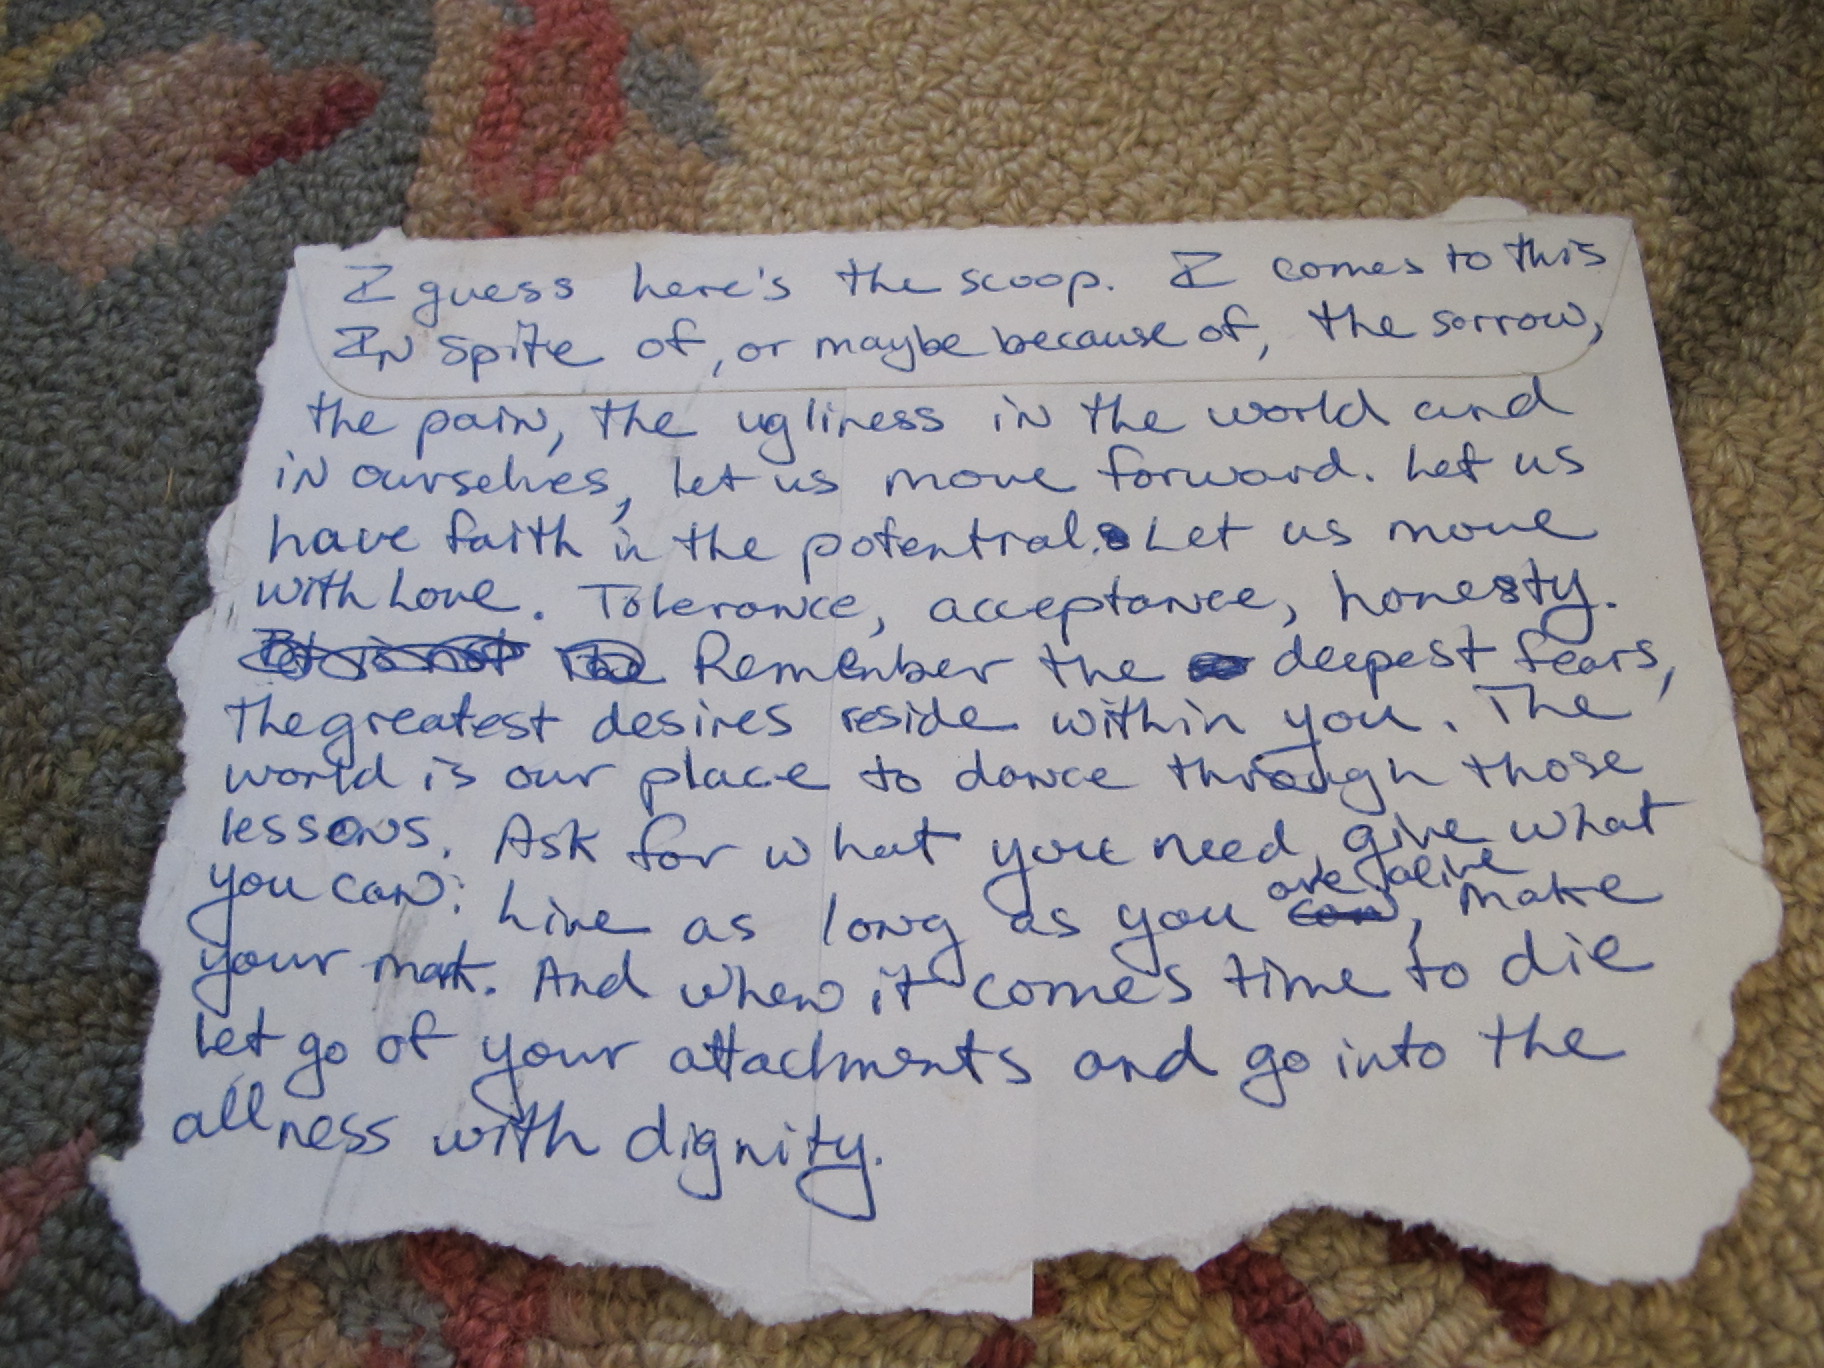 I guess here's the scoop. I comes to this
In spite of, or maybe because of, the sorrow,
the pain, the ugliness in the world and
in ourselves, let us move forward. Let us
have faith in the potential. Let us move
with Love. Tolerance, acceptance, honesty.
Remember the deepest fears,
the greatest desires reside within you. The
world is our place to dance through those
lessons. Ask for what you need, give what
you can. Live as long as you are alive, make
your mark. And when it comes time to die
let go of your attachments and go into the
allness with dignity.